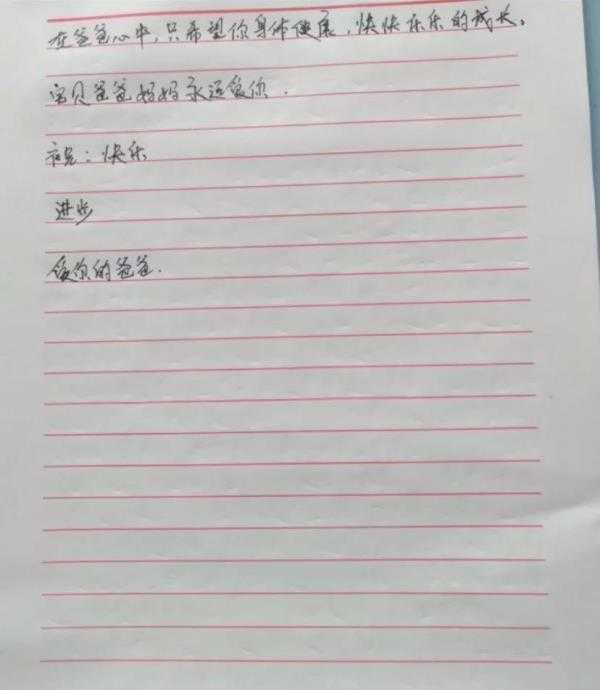 在爸爸心中,只希望你身体健康,快快乐乐的成长。
宝贝爸爸妈妈永远爱你.
祝:快乐
进步
爱你的爸爸.